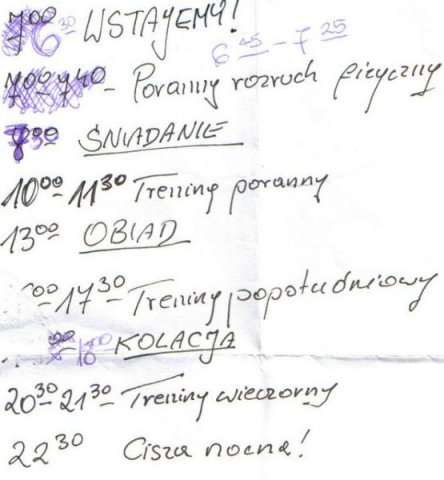 6³⁰ WSTAJEMY!
6⁴⁵ - 7²⁵
Poranny rozruch fizyczny
ŚNIADANIE
10⁰⁰ 11³⁰ Trening poranny
13⁰⁰ OBIAD
17³⁰ Trening popołudniowy
18⁰⁰ KOLACJA
20³⁰ 21³⁰ Trening wieczorny
22³⁰ Cisza nocna!